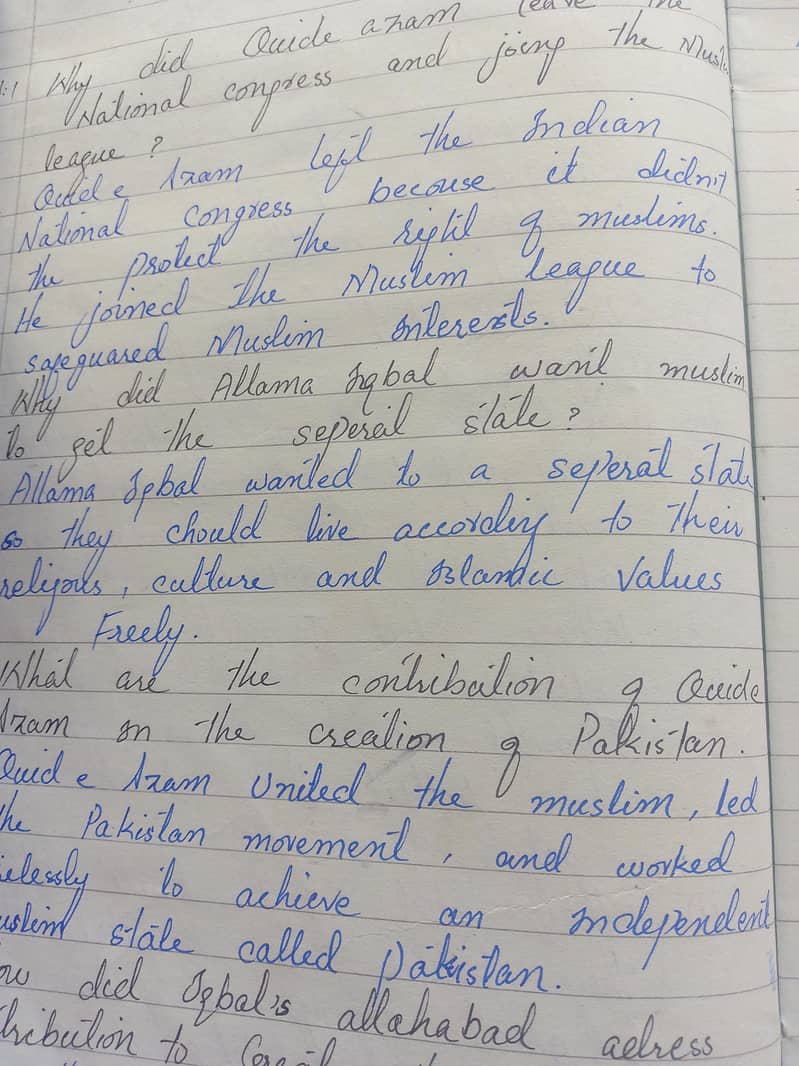 Why did Quide azam leave the
National congress and joing the Musl
league ?
Quid e Azam left the Indian
National Congress becouse it didn't
the protect the right of muslims.
He joined the Muslim league to
safeguared Muslim interests.
Why did Allama Iqbal want muslim
to get the seperat state ?
Allama Iqbal wanted to a seperat state
so they chould live according to their
religous, culture and Islamic Values
Freely.
What are the contribution of Quide
Azam in the creation of Pakistan.
Quid e Azam United the muslim, led
the Pakistan movement, and worked
ielessly to achieve an independent
uslim state called Pakistan.
ow did Iqbal's allahabad adress
tribution to